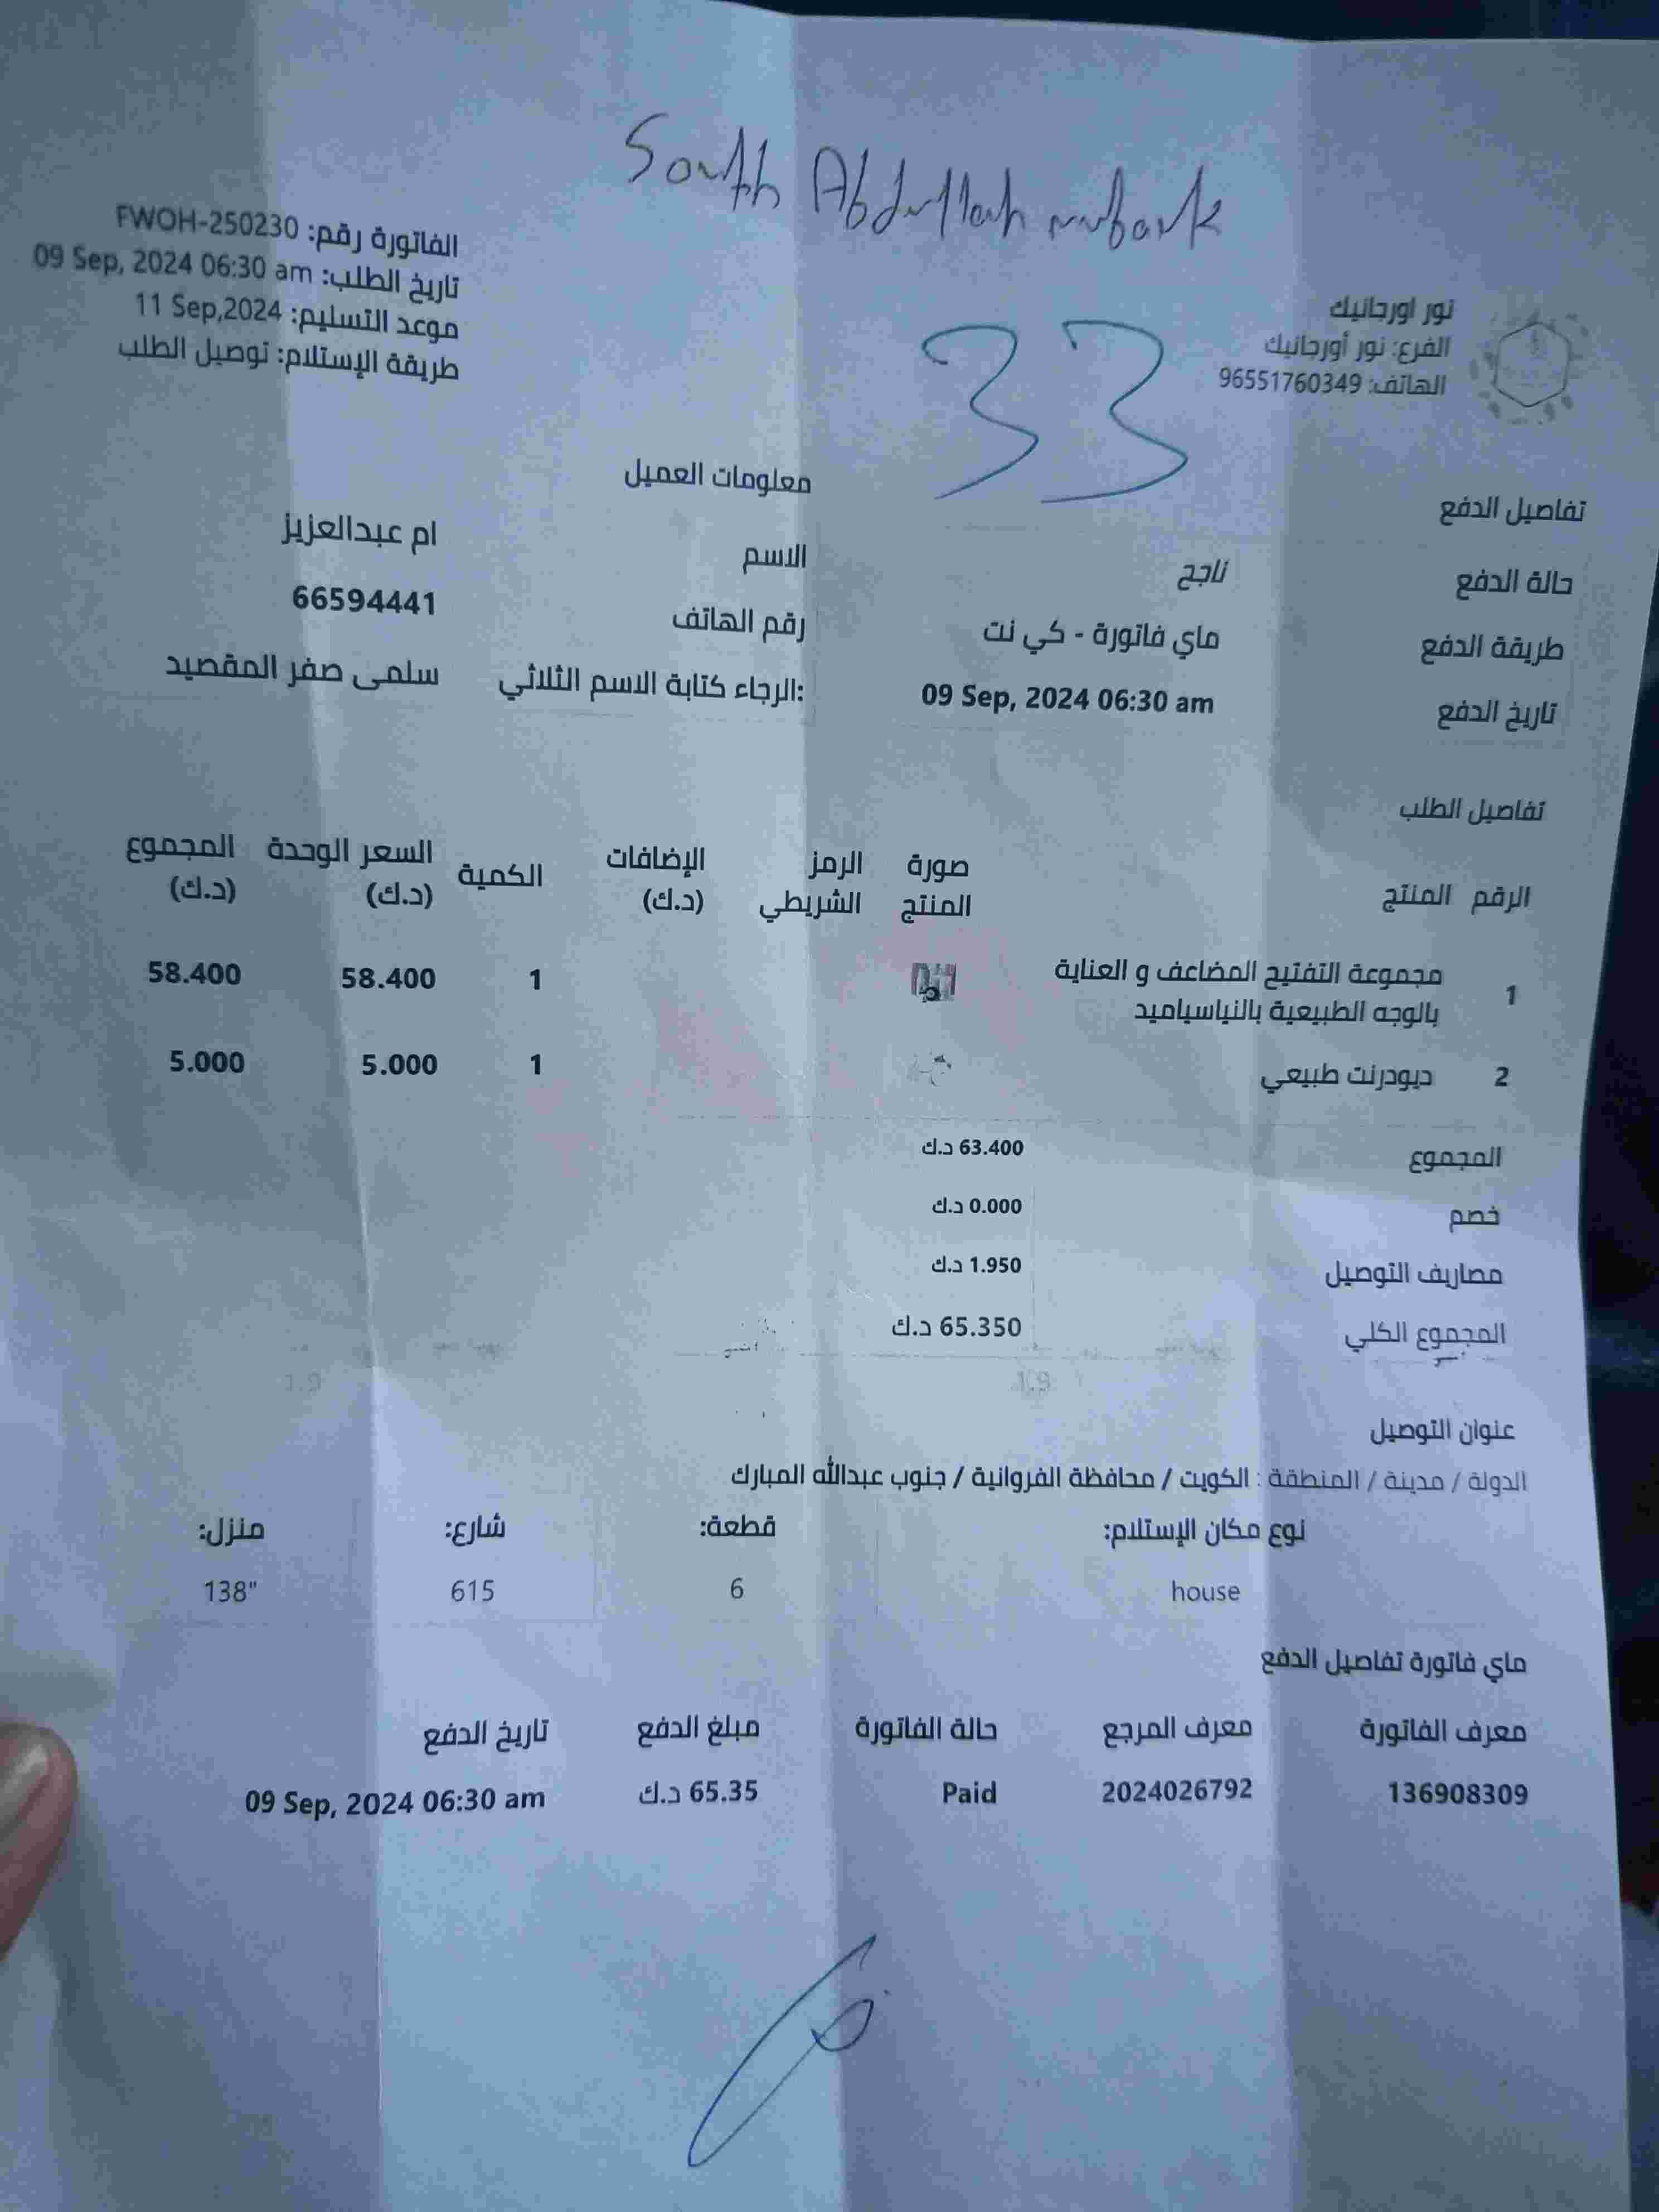 South Abdullah mubark
33
نور اورجانيك
الفرع: نور أورجانيك
الهاتف: 96551760349
الفاتورة رقم: FWOH-250230
تاريخ الطلب: 09 Sep, 2024 06:30 am
موعد التسليم: 11 Sep,2024
طريقة الإستلام: توصيل الطلب
تفاصيل الدفع
حالة الدفع ناجح
طريقة الدفع ماي فاتورة - كي نت
تاريخ الدفع 09 Sep, 2024 06:30 am
معلومات العميل
الاسم ام عبدالعزيز
رقم الهاتف 66594441
:الرجاء كتابة الاسم الثلاثي سلمى صفر المقصيد
تفاصيل الطلب
الرقم المنتج صورة المنتج الرمز الشريطي الإضافات (د.ك) الكمية السعر الوحدة (د.ك) المجموع (د.ك)
1 مجموعة التفتيح المضاعف و العناية 1 58.400 58.400
بالوجه الطبيعية بالنياسياميد
2 ديودرنت طبيعي 1 5.000 5.000
المجموع 63.400 د.ك
خصم 0.000 د.ك
مصاريف التوصيل 1.950 د.ك
المجموع الكلي 65.350 د.ك
عنوان التوصيل
الدولة / مدينة / المنطقة : الكويت / محافظة الفروانية / جنوب عبدالله المبارك
نوع مكان الإستلام: قطعة: شارع: منزل:
house 6 615 138"
ماي فاتورة تفاصيل الدفع
معرف الفاتورة معرف المرجع حالة الفاتورة مبلغ الدفع تاريخ الدفع
136908309 2024026792 Paid 65.35 د.ك 09 Sep, 2024 06:30 am